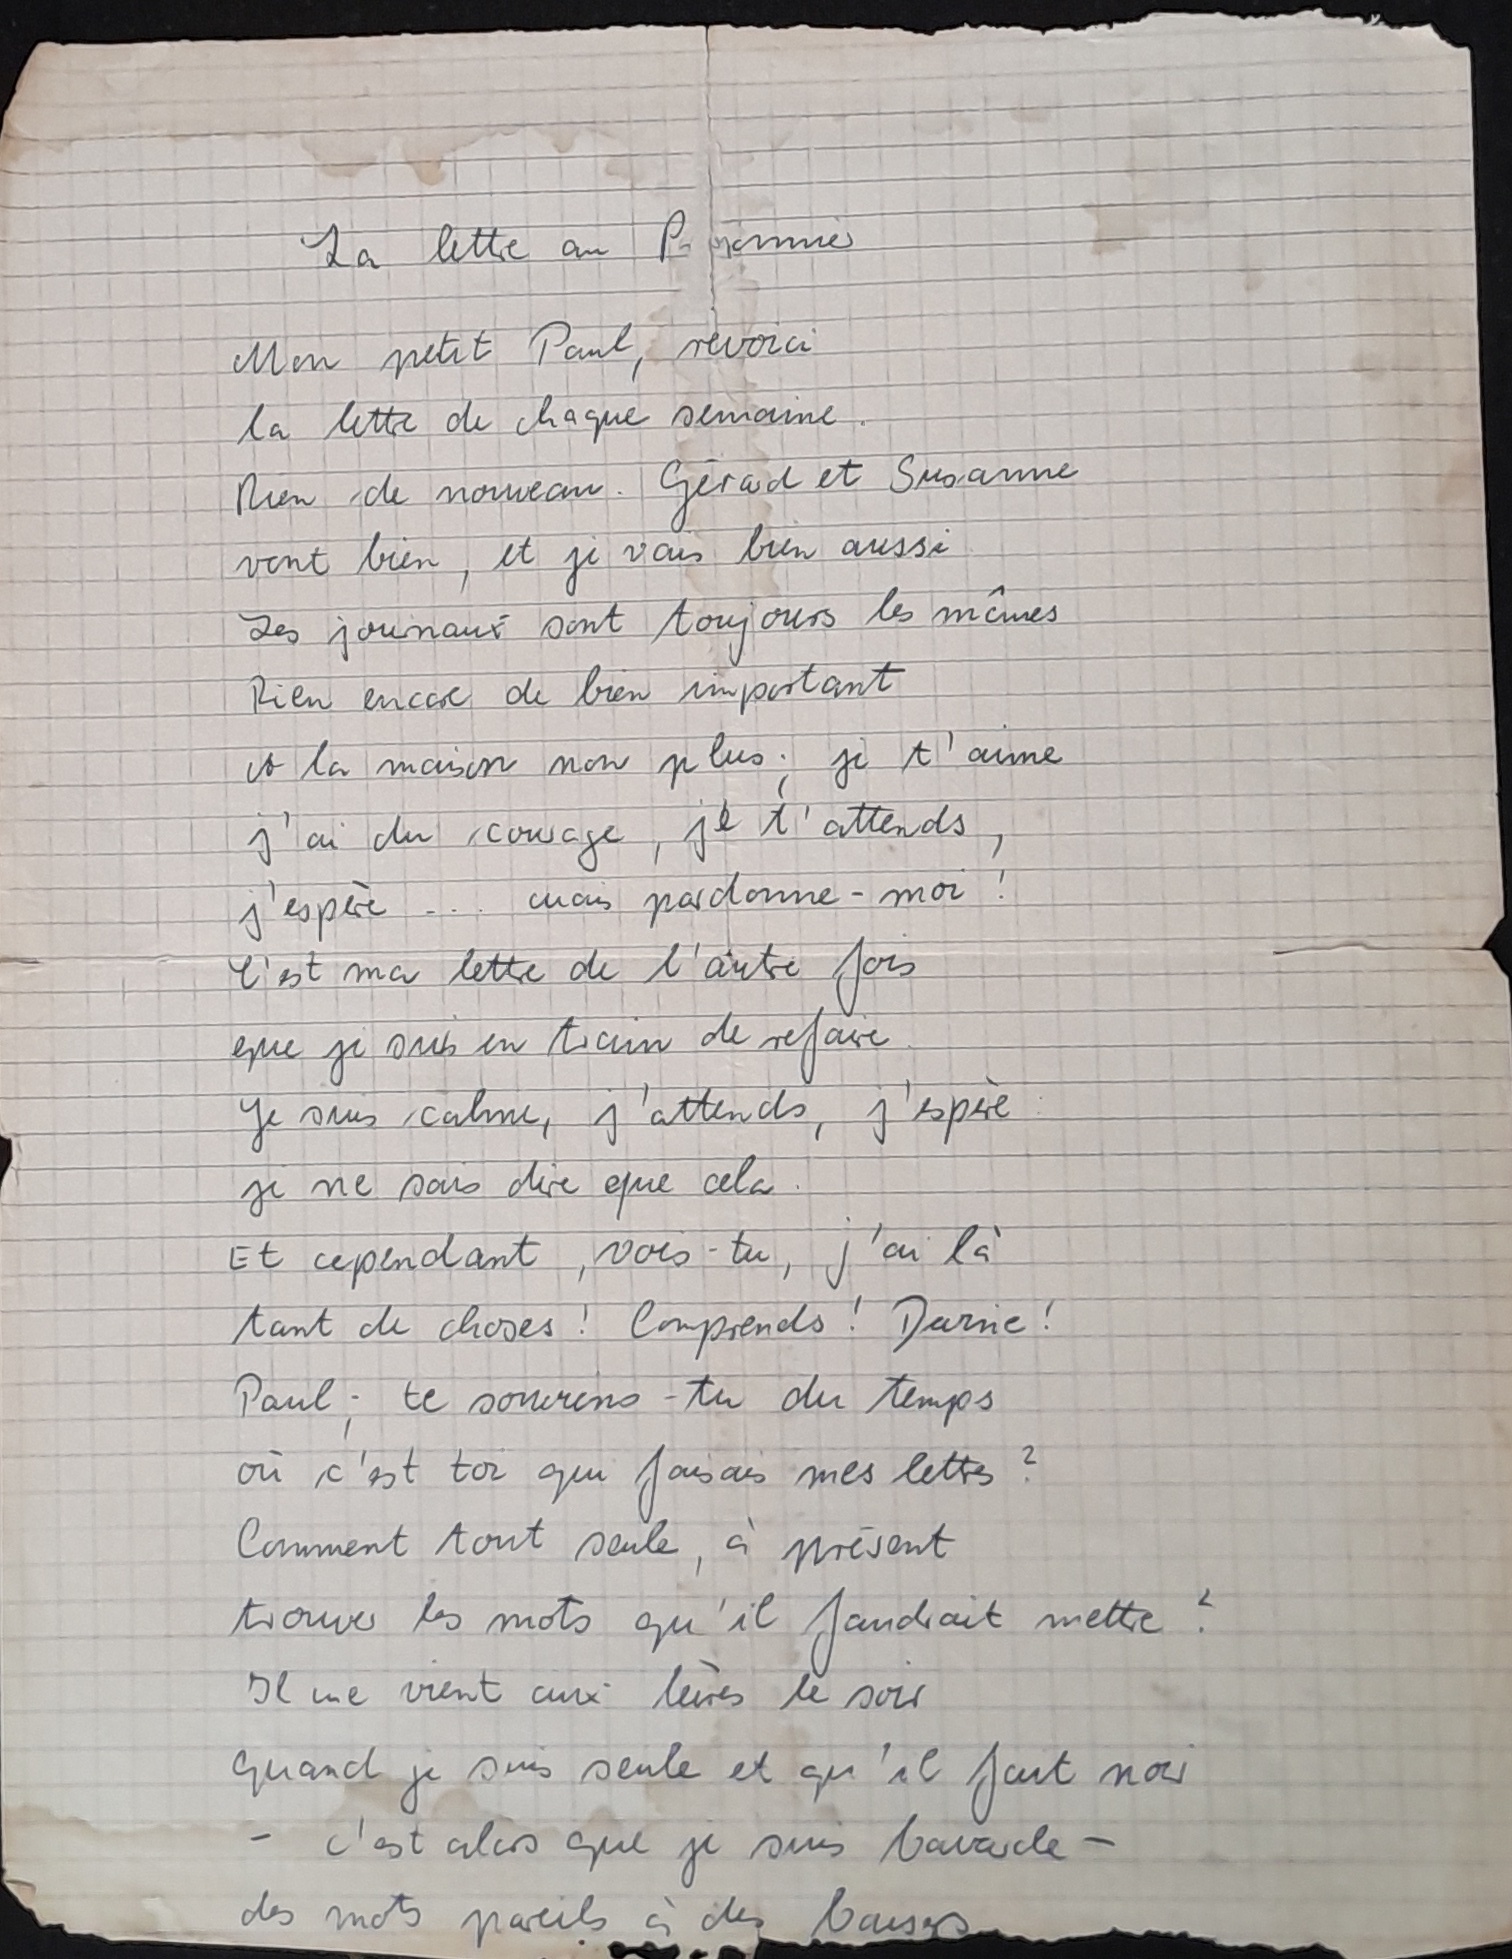 La lettre au Prisonnier
Mon petit Paul, revoici
la lettre de chaque semaine.
Rien de nouveau. Gérard et Susanne
vont bien, et je vais bien aussi
Les journaux sont toujours les mêmes
Rien encore de bien important
à la maison non plus; je t'aime
j'ai du courage, je t'attends,
j'espère ... mais pardonne-moi !
C'est ma lettre de l'autre fois
que je suis en train de refaire.
Je suis calme, j'attends, j'espère :
je ne sais dire que cela.
Et cependant, vois-tu, j'ai là
tant de choses ! Comprends ! Devine !
Paul; te souviens-tu du temps
où c'est toi qui faisais mes lettres ?
Comment tout seule, à présent
trouver les mots qu'il faudrait mettre ?
Il me vient aux lèvres le soir
quand je suis seule et qu'il fait noir
- c'est alors que je suis bavarde -
des mots pareils à des baisers